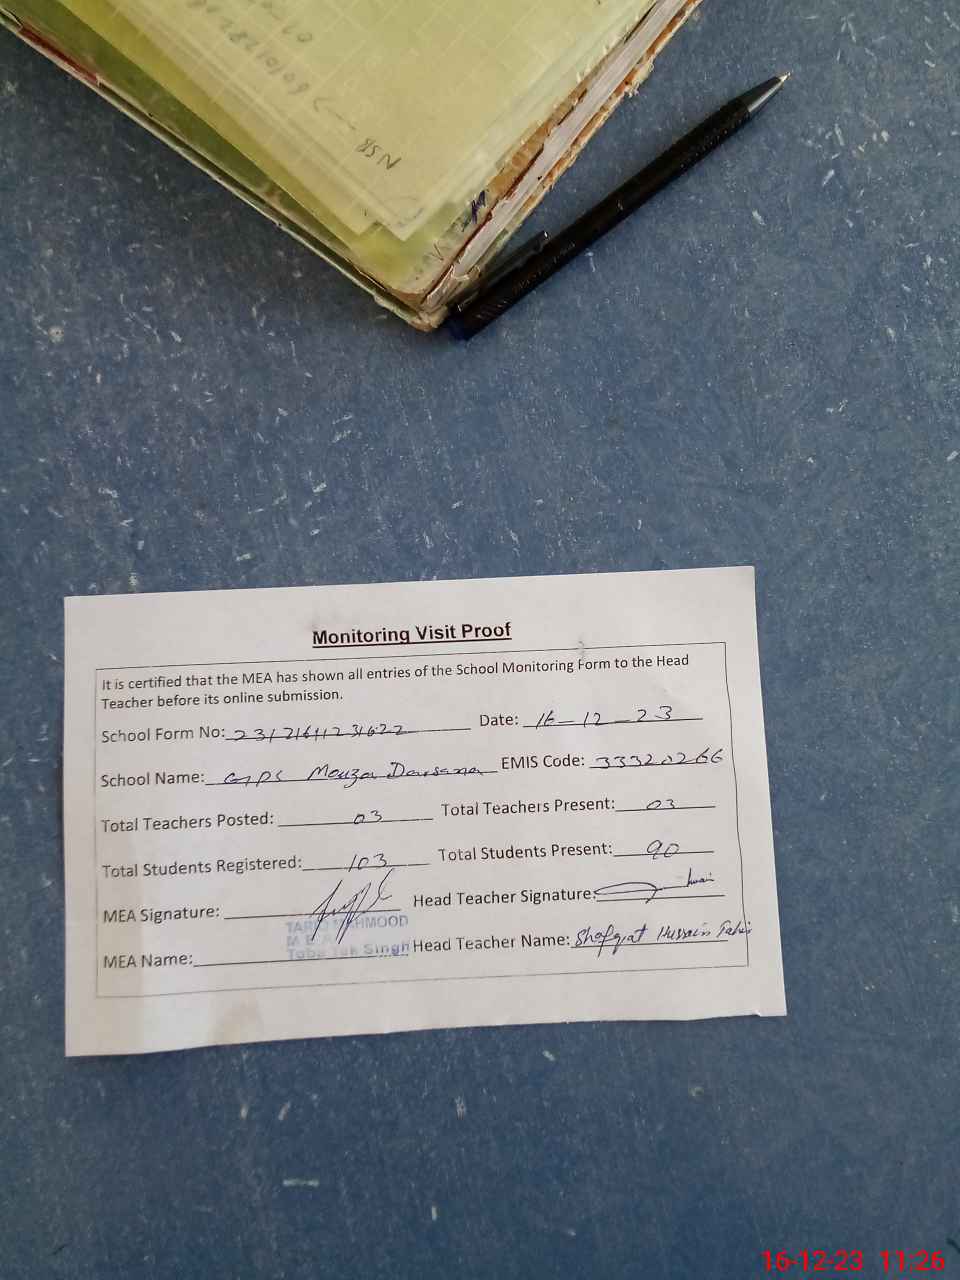 NSB
Monitoring Visit Proof
It is certified that the MEA has shown all entries of the School Monitoring Form to the Head
Teacher before its online submission.
School Form No: Date: 16-12-23
School Name: GPS Mauza Darsana EMIS Code: 33320266
Total Teachers Posted: 03 Total Teachers Present: 03
Total Students Registered: 103 Total Students Present: 90
MEA Signature: Head Teacher Signature:
TARIQ MAHMOOD
M E A
Toba Tek Singh
MEA Name: Head Teacher Name: Shafqat Hussain Tahir
16-12-23 11:26